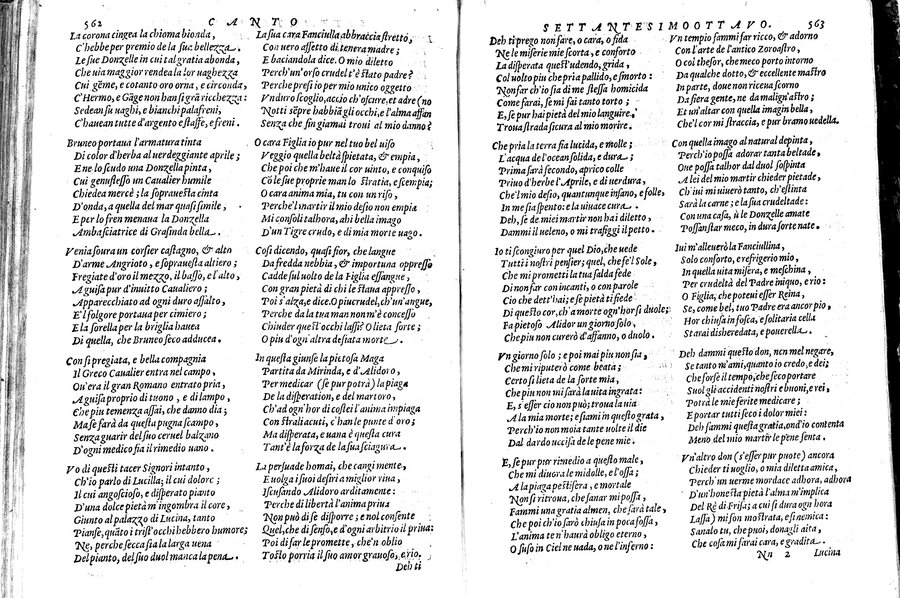 562 CANTO
La corona cingea la chioma bionda,
C'hebbe per premio de la sue bellezza.
Le sue Donzelle in cui tal gratia abonda,
Che uia maggior rendea la lor uaghezza
Cui gēme, e cotanto oro orna, e circonda,
C'Hermo, e Gāge non han sì grā ricchezza:
Sedean sù uaghi, e bianchi palafreni,
C'haueau tutte d'argento e staffe, e freni.
Bruneo portaua l'armatura tinta
Di color d'herba al uerdeggiante aprile;
E ne lo scudo una Donzella pinta,
Cui genuflesso un Caualier humile
Chiedea mercè; la soprauesta cinta
D'onda, a quella del mar quasi simile,
E per lo fren menaua la Donzella
Ambasciatrice di Grasinda bella.
Venia soura un corsier castagno, & alto
D'arme Angrioto, e soprauesta altiero;
Fregiate d'oro il mezzo, il basso, e l'alto,
A guisa pur d'inuitto Caualiero;
Apparecchiato ad ogni duro assalto,
E'l folgore portaua per cimiero;
E la sorella per la briglia hauea
Di quella, che Bruneo seco adducea.
Con sì pregiata, e bella compagnia
Il Greco Caualier entra nel campo,
Ou'era il gran Romano entrato pria,
A guisa proprio di tuono, e di lampo,
Che piu temenza assai, che danno dia;
Ma se farà da questa pugna scampo,
Senza guarir del suo ceruel balzano
D'ogni medico fia il rimedio uano.
Vo di questi tacer Signori intanto,
Ch'io parlo di Lucilla; il cui dolore;
Il cui angoscioso, e disperato pianto
D'una dolce pietà m'ingombra il core,
Giunto al palazzo di Lucina, tanto
Pianse, quāto i trist'occhi hebbero humore;
Ne, perche secca sia la larga uena
Del pianto, del suo duol manca la pena.
La sua cara Fanciulla abbraccia stretto,
Con uero affetto di tenera madre;
E baciandola dice. O mio diletto
Perch'un'orso crudel t'è stato padre?
Perche presi io per mio unico oggetto
Vn duro scoglio, accio ch'oscure, et adre (no
Notti sēpre habbiā gli occhi, e l'alma affan
Senza che fin giamai troui al mio danno?
O cara Figlia io pur nel tuo bel uiso
Veggio quella beltà spietata, & empia,
Che poi che m'haue il cor uinto, e conquiso
Cō le sue proprie man lo stratia, e scempia;
O cara anima mia, tu con un riso,
Perche'l martir il mio desio non empia
Mi consoli talhora, ahi bella imago
D'un Tigre crudo, e di mia morte uago.
Così dicendo, quasi fior, che langue
Da fredda nebbia, & importuna oppresso
Cadde sul uolto de la Figlia essangue,
Con gran pietà di chi le staua appresso,
Poi s'alza, e dice. O piu crudel, ch'un'angue,
Perche da la tua man non m'è concesso
Chiuder quest'occhi lassi? O lieta sorte;
O piu d'ogni altra desiata morte.
In questa giunse la pietosa Maga
Partita da Mirinda, e d'Alidoro,
Per medicar (se pur potrà) la piaga
De la disperation, e del martoro,
Ch'ad ogn'hor di costei l'anima impiaga
Con strali acuti, c'han le punte d'oro;
Ma disperata, e uana è questa cura
Tant'è la forza de la sua sciagura.
La persuade homai, che cangi mente,
E uolga i suoi desiri a miglior riua,
Iscusando Alidoro arditamente:
Perche di libertà l'anima priua
Non può di se disporre; e nol consente
Quel, che di senso, e d'ogni arbitrio il priua:
Poi di farle promette, che'n oblio
Tosto porria il suo amor grauoso, e rio.
Deh ti
SETTANTESIMOOTTAVO. 563
Deh ti prego non fare, o cara, o fida
Ne le miserie mie scorta, e conforto
La disperata quest'udendo, grida,
Col uolto piu che pria pallido, e smorto:
Non far ch'io sia di me stessa homicida
Come sarai, se mi fai tanto torto;
E, se pur hai pietà del mio languire,
Troua strada sicura al mio morire.
Che pria la terra fia lucida, e molle;
L'acqua de l'ocean solida, e dura;
Prima sarà secondo, aprico colle
Priuo d'herbe l'Aprile, e di uerdura,
Che'l mio desio, quantunque insano, e folle,
In me sia spento: e la uiuace cura.
Deh, se de miei martir non hai diletto,
Dammi il ueleno, o mi trafiggi il petto.
Io ti scongiuro per quel Dio, che uede
Tutti i nostri pensier; quel, che fe'l Sole,
Che mi prometti la tua salda fede
Di non far con incanti, o con parole
Cio che dett'hai; e se pietà ti fiede
Di questo cor, ch'a morte ogn'hor si duole;
Fa pietoso Alidor un giorno solo,
Che piu non curerò d'affanno, o duolo.
Vn giorno solo; e poi mai piu non sia,
Che mi riputerò come beata;
Certo sì lieta de la sorte mia,
Che piu non mi sarà la uita ingrata:
E, s'esser cio non può; troua la uia
A la mia morte; e siami in questo grata,
Perch'io non moia tante uolte il die
Dal dardo uccisa de le pene mie.
E, se pur pier rimedio a questo male,
Che mi diuora le midolle, e l'ossa;
A la piaga pestifera, e mortale
Non si ritroua, che sanar mi possa,
Fammi una gratia almen, che sarà tale,
Che poi ch'io sarò chiusa in poca fossa,
L'anima te n'haurà obligo eterno,
O suso in Ciel ne uada, o ne l'inferno:
Vn tempio fammi far ricco, & adorno
Con l'arte de l'antico Zoroastro,
O col thesor, che meco porto intorno
Da qualche dotto, & eccellente mastro
In parte, doue non riceua scorno
Da fiera gente, ne da malign'astro;
Et un'altar con quella imagin bella,
Che'l cor mi straccia, e pur bramo uedella.
Con quella imago al natural depinta,
Perch'io possa adorar tanta beltade,
One possa talhor dal duol sospinta
A lei del mio martir chieder pietade,
Ch'iui mi uiuerò tanto, ch'estinta
Sarà la carne; e la sua crudeltade:
Con una casa, ù le Donzelle amate
Possan star meco, in dura sorte nate.
Iui m'alleuerò la Fanciullina,
Solo conforto, e refrigerio mio,
In quella uita misera, e meschina,
Per crudeltà del Padre iniquo, e rio:
O Figlia, che poteui esser Reina,
Se, come bel, tuo Padre era ancor pio,
Hor chiusa in fosca, e solitaria cella
Starai disheredata, e pouerella.
Deh dammi questo don, non mel negare,
Se tanto m'ami, quanto io credo, e dei;
Che forse il tempo, che seco portare
Suol gli accidenti nostri e buoni, e rei,
Potrà le mie ferite medicare;
E portar tutti seco i dolor miei:
Deh fammi questa gratia, ond'io contenta
Meno del mio martir le pene senta.
Vn'altro don (s'esser pur puote) ancora
Chieder ti uoglio, o mia diletta amica,
Perch'un uerme mordace adhora, adhora
D'un'honesta pietà l'alma m'implica
Del Rè di Frisa; a cui sì dura ogn'hora
(Lassa) mi son mostrata, e sì nemica:
Sanalo tu, che puoi, donagli aita,
Che cosa mi sarai cara, e gradita.
Nn 2 Lucina